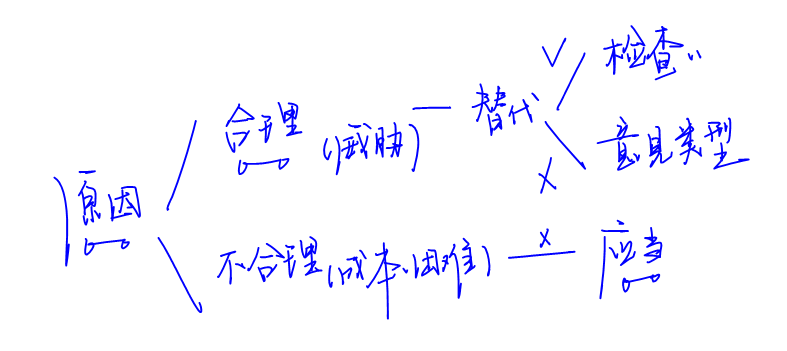 原因
合理(威胁)
替代
√ 检查
× 意见类型
不合理(成本、困难)
×
应当